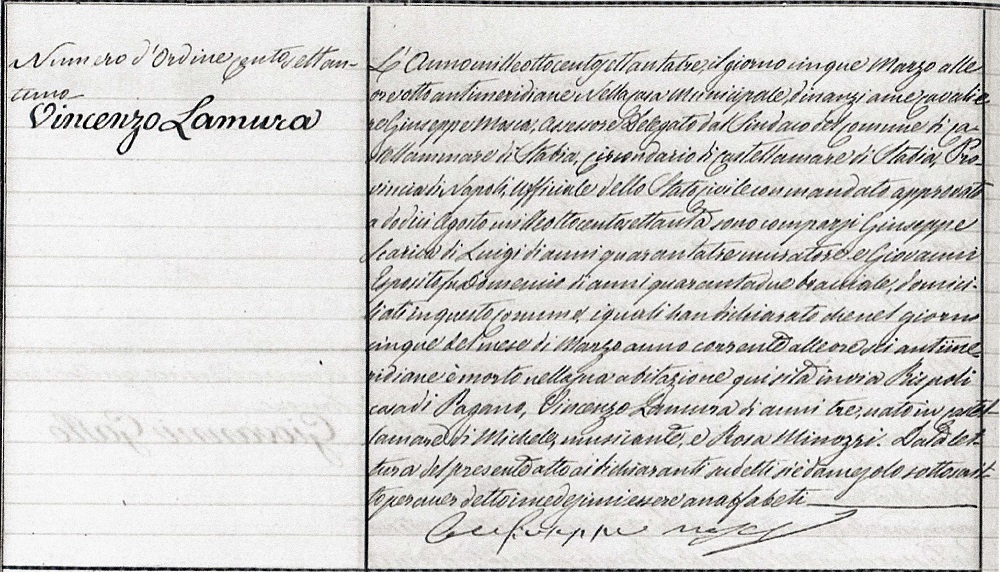 Numero d'Ordine centosettan-
tuno
Vincenzo Lamura
L'Anno milleottocentosettantatre, il giorno cinque Marzo alle
ore otto antimeridiane nella casa Municipale, dinanzi a me Cavalie-
re Giuseppe Mosca, Assessore Delegato dal Sindaco del Comune di Ca-
stellammare di Stabia, Circondario di Castellamare di Stabia, Pro-
vincia di Napoli, Uffiziale dello Stato civile con mandato approvato
a dodici Agosto milleottocentosettanta sono comparsi Giuseppe
Scarica di Luigi di anni quarantatre muratore e Giovanni
Esposito fu Domenico di anni quarantadue bracciale, domici-
liati in questo Comune, i quali han dichiarato che nel giorno
cinque del mese di Marzo anno corrente alle ore sei antime-
ridiane è morto nella sua abitazione qui sita in via Rispoli
casa di Pagano, Vincenzo Lamura di anni tre, nato in Castel-
lamare di Michele, musicante, e Rosa Minozzi. Data let-
tura del presente atto ai dichiaranti suddetti si è da me solo sottoscrit-
to per aver detto i medesimi essere analfabeti
Giuseppe